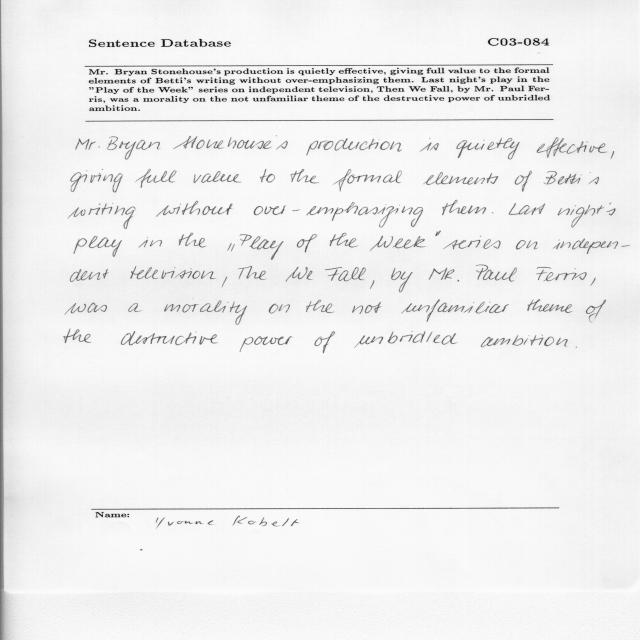 Sentence Database C03-084
Mr. Bryan Stonehouse's production is quietly effective, giving full value to the formal
elements of Betti's writing without over-emphasizing them. Last night's play in the
"Play of the Week" series on independent television, Then We Fall, by Mr. Paul Fer-
ris, was a morality on the not unfamiliar theme of the destructive power of unbridled
ambition.
Mr. Bryan Stonehouse's production is quietly effective,
giving full value to the formal elements of Betti's
writing without over-emphasizing them. Last night's
play in the „Play of the Week" series on indepen-
dent television, The We Fall, by Mr. Paul Ferris,
was a morality on the not unfamiliar theme of
the destructive power of unbridled ambition.
Name: Yvonne Kobelt